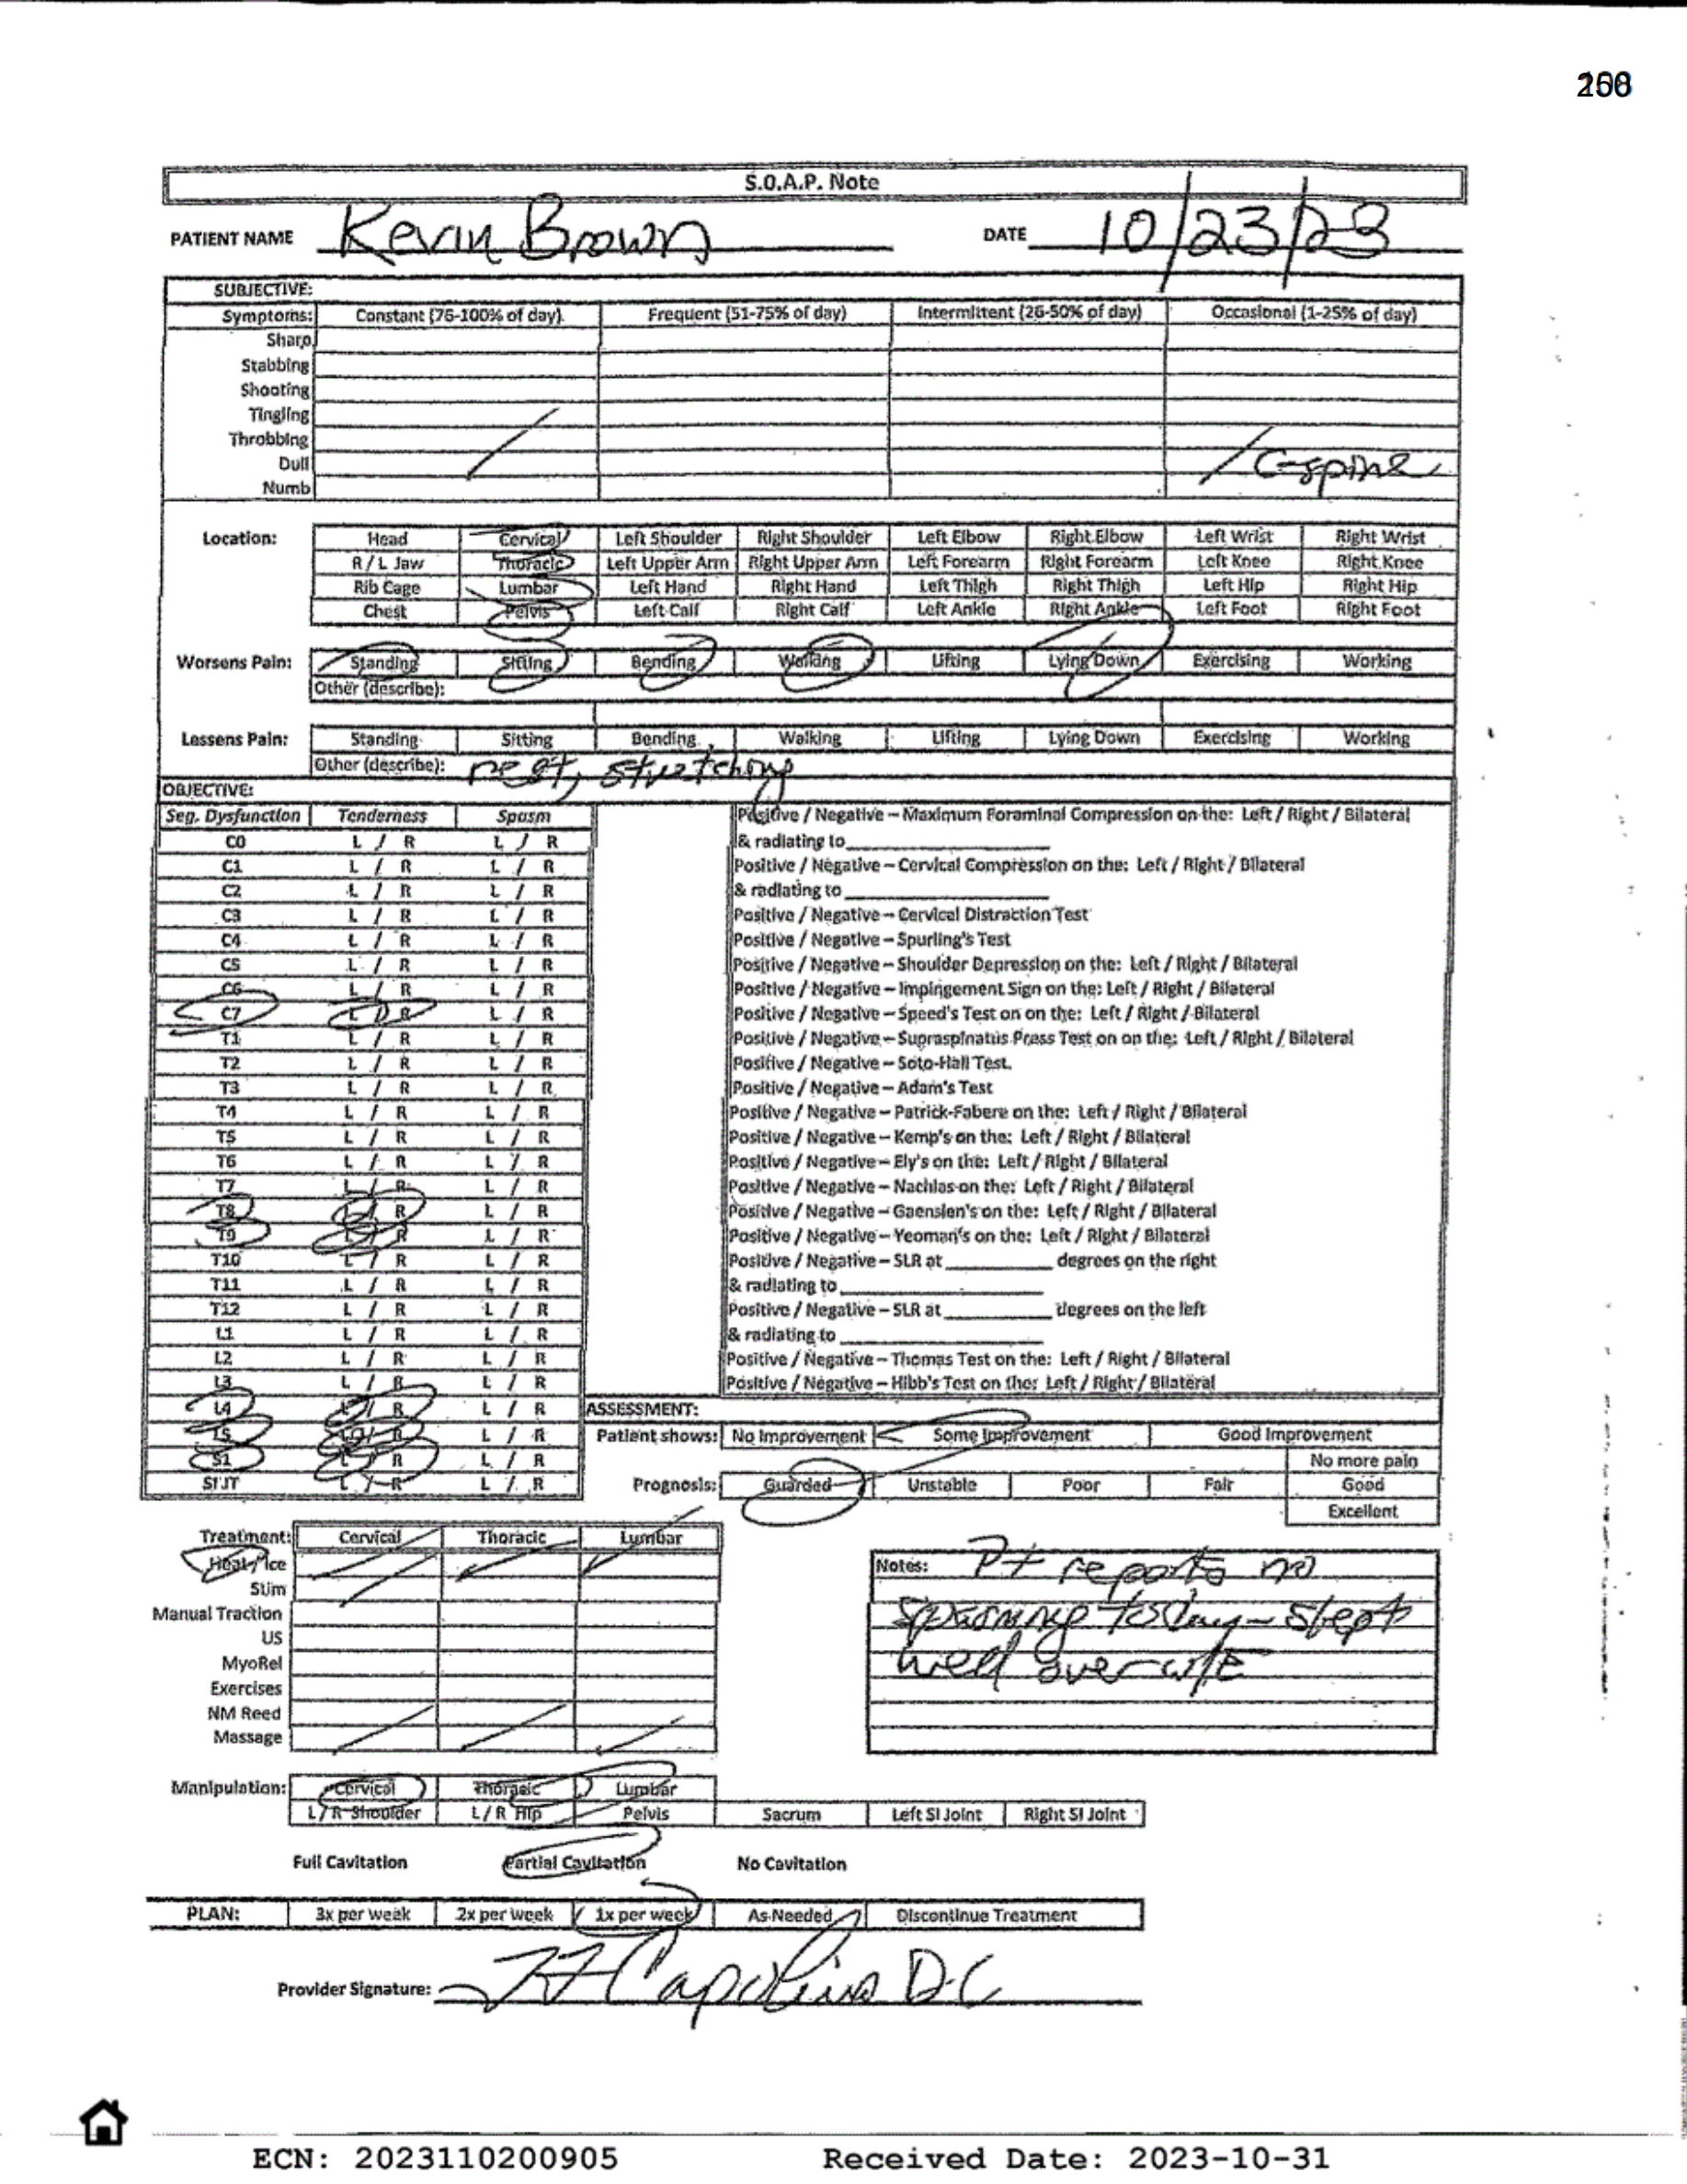 S.O.A.P. Note
PATIENT NAME Kevin Brown DATE 10/23/23
SUBJECTIVE:
Symptoms: Constant (76-100% of day) Frequent (51-75% of day) Intermittent (26-50% of day) Occasional (1-25% of day)
Sharp
Stabbing
Shooting
Tingling
Throbbing
Dull C-spine
Numb
Location: Head Cervical Left Shoulder Right Shoulder Left Elbow Right Elbow Left Wrist Right Wrist
R / L Jaw Thoracic Left Upper Arm Right Upper Arm Left Forearm Right Forearm Left Knee Right Knee
Rib Cage Lumbar Left Hand Right Hand Left Thigh Right Thigh Left Hip Right Hip
Chest Pelvis Left Calf Right Calf Left Ankle Right Ankle Left Foot Right Foot
Worsens Pain: Standing Sitting Bending Walking Lifting Lying Down Exercising Working
Other (describe):
Lessens Pain: Standing Sitting Bending Walking Lifting Lying Down Exercising Working
Other (describe): rest, stretching
OBJECTIVE:
Seg. Dysfunction Tenderness Spasm Positive / Negative – Maximum Foraminal Compression on the: Left / Right / Bilateral
C0 L / R L / R & radiating to
C1 L / R L / R Positive / Negative – Cervical Compression on the: Left / Right / Bilateral
C2 L / R L / R & radiating to
C3 L / R L / R Positive / Negative – Cervical Distraction Test
C4 L / R L / R Positive / Negative – Spurling's Test
C5 L / R L / R Positive / Negative – Shoulder Depression on the: Left / Right / Bilateral
C6 L / R L / R Positive / Negative – Impingement Sign on the: Left / Right / Bilateral
C7 L / R L / R Positive / Negative – Speed's Test on on the: Left / Right / Bilateral
T1 L / R L / R Positive / Negative – Supraspinatus Press Test on on the: Left / Right / Bilateral
T2 L / R L / R Positive / Negative – Soto-Hall Test.
T3 L / R L / R Positive / Negative – Adam's Test
T4 L / R L / R Positive / Negative – Patrick-Fabere on the: Left / Right / Bilateral
T5 L / R L / R Positive / Negative – Kemp's on the: Left / Right / Bilateral
T6 L / R L / R Positive / Negative – Ely's on the: Left / Right / Bilateral
T7 L / R L / R Positive / Negative – Nachlas on the: Left / Right / Bilateral
T8 L / R L / R Positive / Negative – Gaenslen's on the: Left / Right / Bilateral
T9 L / R L / R Positive / Negative – Yeoman's on the: Left / Right / Bilateral
T10 L / R L / R Positive / Negative – SLR at degrees on the right
T11 L / R L / R & radiating to
T12 L / R L / R Positive / Negative – SLR at degrees on the left
L1 L / R L / R & radiating to
L2 L / R L / R Positive / Negative – Thomas Test on the: Left / Right / Bilateral
L3 L / R L / R Positive / Negative – Hibb's Test on the: Left / Right / Bilateral
L4 L / R L / R ASSESSMENT:
L5 L / R L / R Patient shows: No Improvement Some Improvement Good Improvement
S1 L / R L / R No more pain
SI JT L / R L / R Prognosis: Guarded Unstable Poor Fair Good
Excellent
Treatment: Cervical Thoracic Lumbar
Heat / Ice Notes: Pt reports no
Stim
Manual Traction spasming today – slept
US
MyoRel well over w/E
Exercises
NM Reed
Massage
Manipulation: Cervical Thoracic Lumbar
L / R Shoulder L / R Hip Pelvis Sacrum Left SI Joint Right SI Joint
Full Cavitation Partial Cavitation No Cavitation
PLAN: 3x per week 2x per week 1x per week As Needed Discontinue Treatment
Provider Signature: D.C
ECN: 2023110200905 Received Date: 2023-10-31